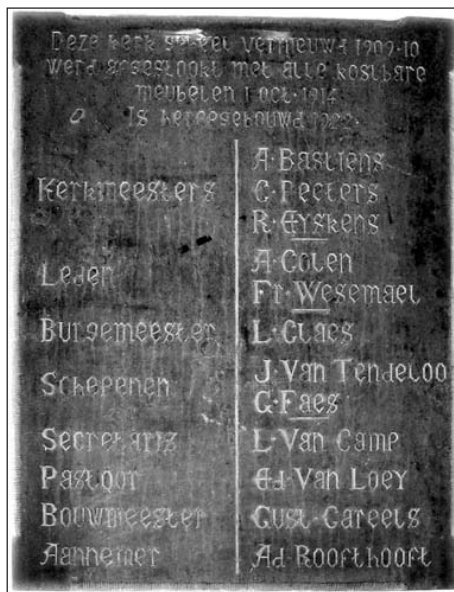 Deze kerk geheel vernieuwd 1909·10
werd afgestookt met alle kostbare
meubelen 1 oct·1914·
Is heropgebouwd 1922·
Kerkmeesters
A·Bastiens
C·Peeters
R·Eyskens
Leden
A·Colen
Fr·Wesemael
Burgemeester
L·Claes
Schepenen
J·Van Tendeloo
G·Faes
Secretaris
L·Van Camp
Pastoor
Ed·Van Loey
Bouwmeester
Gust·Careels
Aannemer
Ad·Roofthooft